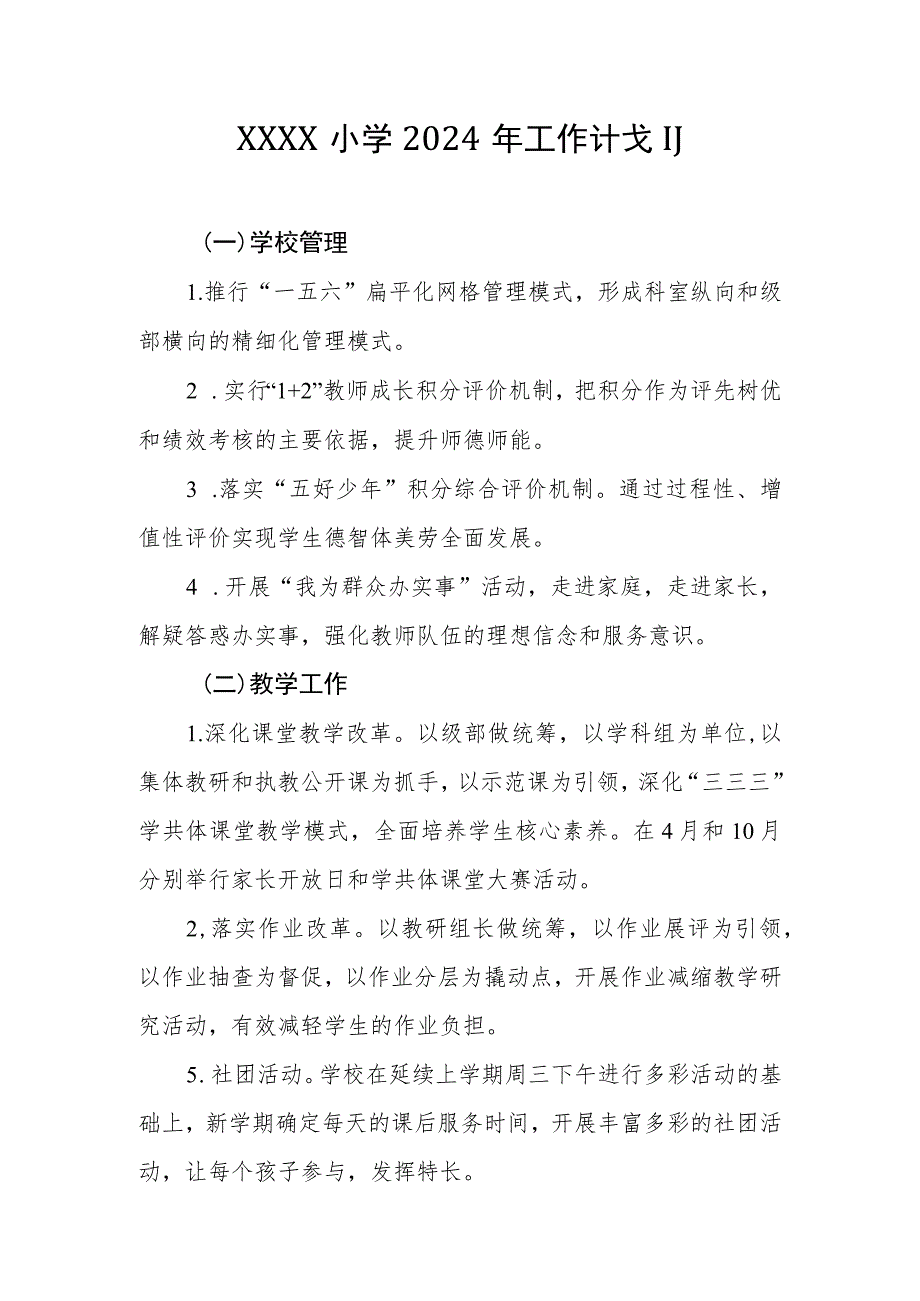 XXXX 小学 2024 年工作计戈 IJ
(一)学校管理
1.推行“一五六”扁平化网格管理模式，形成科室纵向和级
部横向的精细化管理模式。
2 .实行“1+2”教师成长积分评价机制，把积分作为评先树优
和绩效考核的主要依据，提升师德师能。
3 .落实“五好少年”积分综合评价机制。通过过程性、增
值性评价实现学生德智体美劳全面发展。
4 .开展“我为群众办实事”活动，走进家庭，走进家长，
解疑答惑办实事，强化教师队伍的理想信念和服务意识。
(二)教学工作
1.深化课堂教学改革。以级部做统筹，以学科组为单位,以
集体教研和执教公开课为抓手，以示范课为引领，深化“三三三”
学共体课堂教学模式，全面培养学生核心素养。在 4 月和 10 月
分别举行家长开放日和学共体课堂大赛活动。
2,落实作业改革。以教研组长做统筹，以作业展评为引领，
以作业抽查为督促，以作业分层为撬动点，开展作业减缩教学研
究活动，有效减轻学生的作业负担。
5. 社团活动。学校在延续上学期周三下午进行多彩活动的基
础上，新学期确定每天的课后服务时间，开展丰富多彩的社团活
动，让每个孩子参与，发挥特长。